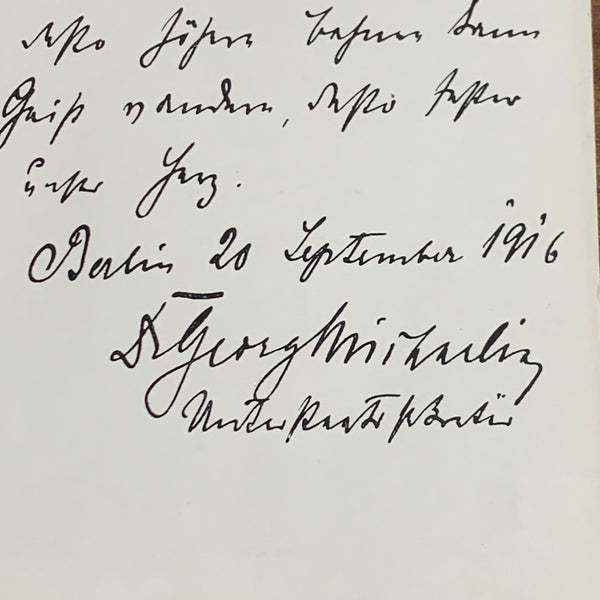 desto höher
Geist, desto fester
unser Herz.
Berlin 20 September 1916
Dr Georg Michaelis
Unterstaatssekretär